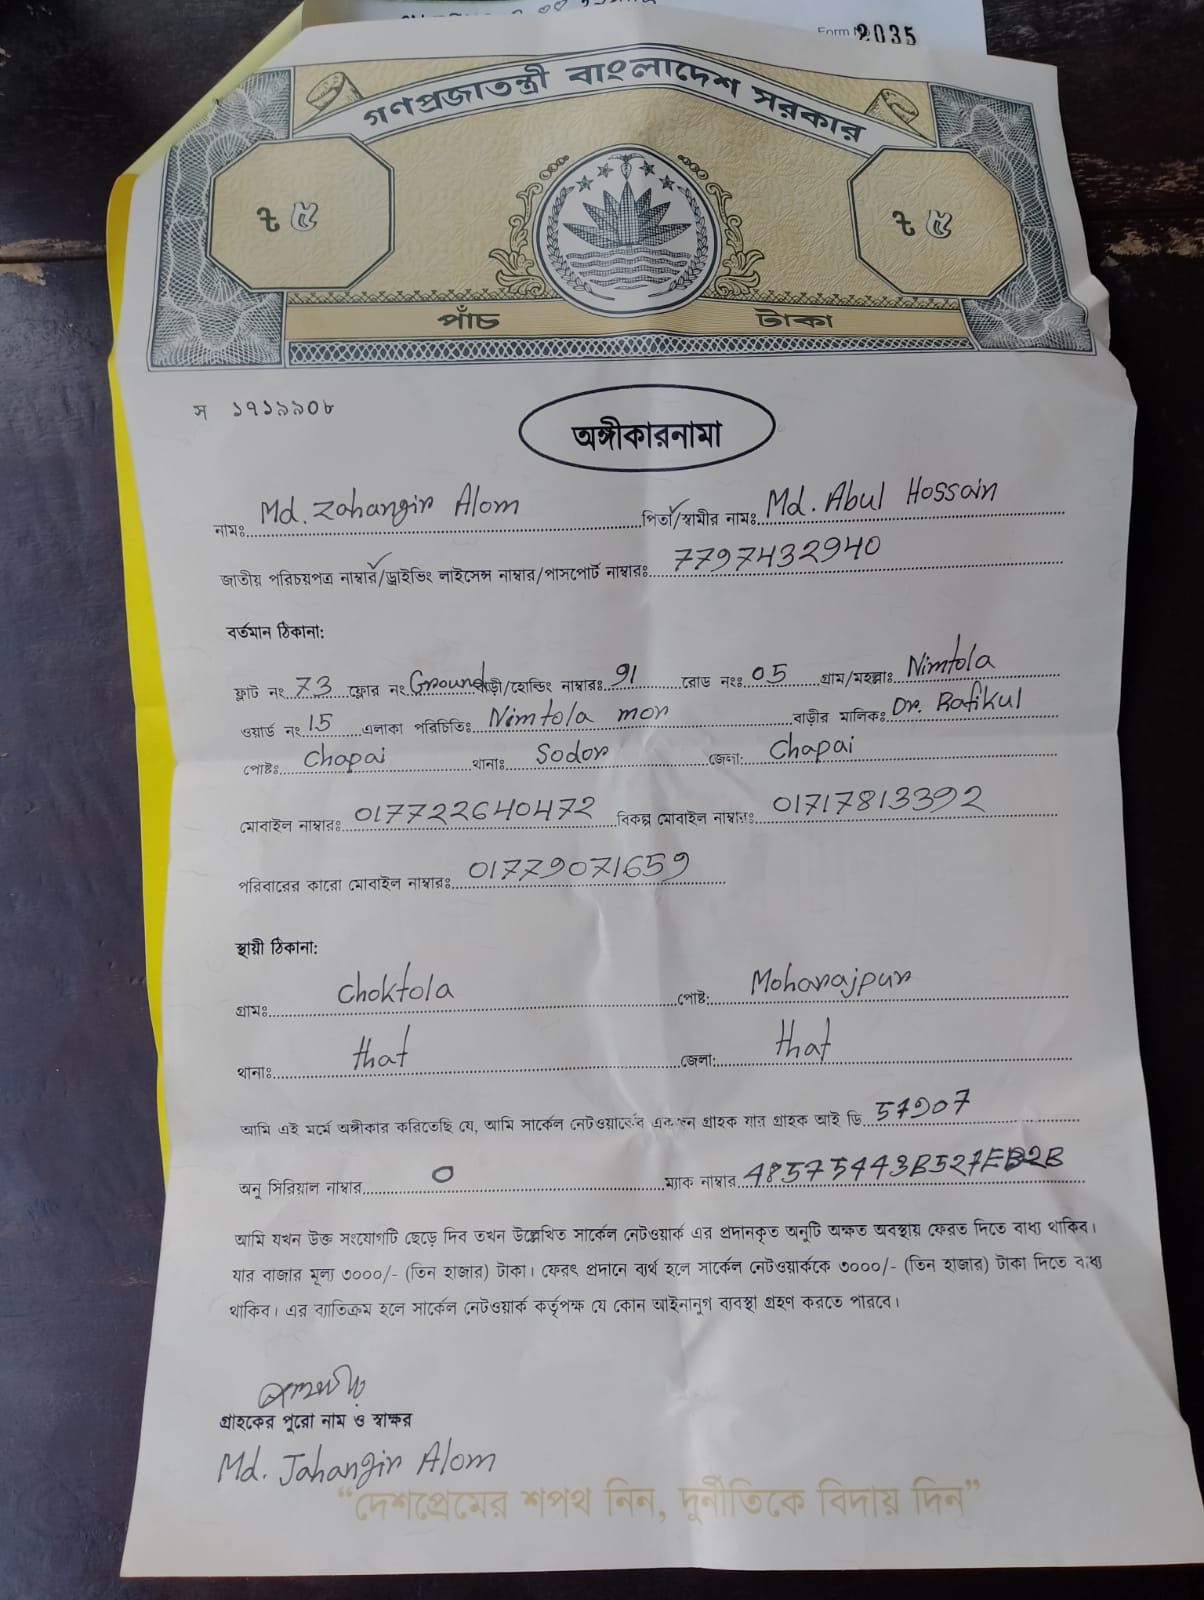 Form No 2035
গণপ্রজাতন্ত্রী বাংলাদেশ সরকার
৳ ৫ ৳ ৫
পাঁচ টাকা
স ১৭১৯৯০৮
অঙ্গীকারনামা
নামঃ Md. Zahangir Alom পিতা/স্বামীর নামঃ Md. Abul Hossain
জাতীয় পরিচয়পত্র নাম্বার/ড্রাইভিং লাইসেন্স নাম্বার/পাসপোর্ট নাম্বারঃ 7797432940
বর্তমান ঠিকানা:
ফ্লাট নং 73 ফ্লোর নং Ground বাড়ী/হোল্ডিং নাম্বারঃ 91 রোড নংঃ 05 গ্রাম/মহল্লাঃ Nimtola
ওয়ার্ড নং 15 এলাকা পরিচিতিঃ Nimtola mor বাড়ীর মালিকঃ Dr. Rafikul
পোষ্টঃ Chapai থানাঃ Sodor জেলা: Chapai
মোবাইল নাম্বারঃ 017722640472 বিকল্প মোবাইল নাম্বারঃ 01717813392
পরিবারের কারো মোবাইল নাম্বারঃ 01779071659
স্থায়ী ঠিকানা:
গ্রামঃ Choktola পোষ্ট: Moharajpur
থানাঃ that জেলা: that
আমি এই মর্মে অঙ্গীকার করিতেছি যে, আমি সার্কেল নেটওয়ার্কের একজন গ্রাহক যার গ্রাহক আই ডি 57907
অনু সিরিয়াল নাম্বার 0 ম্যাক নাম্বার 48575443B527EB2B
আমি যখন উক্ত সংযোগটি ছেড়ে দিব তখন উল্লেখিত সার্কেল নেটওয়ার্ক এর প্রদানকৃত অনুটি অক্ষত অবস্থায় ফেরত দিতে বাধ্য থাকিব।
যার বাজার মূল্য ৩০০০/- (তিন হাজার) টাকা। ফেরৎ প্রদানে ব্যর্থ হলে সার্কেল নেটওয়ার্ককে ৩০০০/- (তিন হাজার) টাকা দিতে বাধ্য
থাকিব। এর ব্যাতিক্রম হলে সার্কেল নেটওয়ার্ক কর্তৃপক্ষ যে কোন আইনানুগ ব্যবস্থা গ্রহণ করতে পারবে।
গ্রাহকের পুরো নাম ও স্বাক্ষর
Md. Jahangir Alom
“দেশপ্রেমের শপথ নিন, দুর্নীতিকে বিদায় দিন”